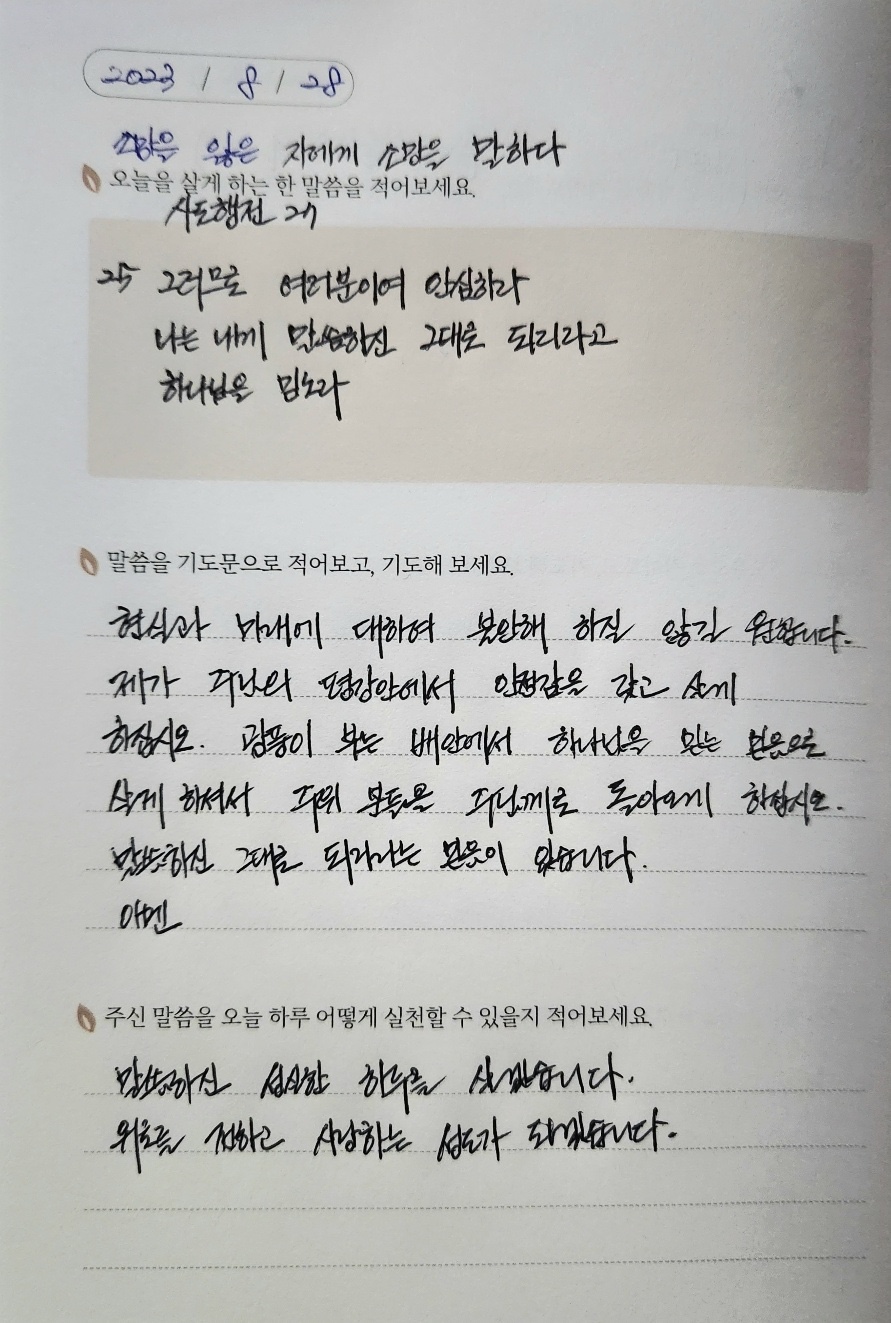 2023 / 8 / 28
소망을 잃은 자에게 소망을 말하다
오늘을 살게 하는 한 말씀을 적어보세요.
사도행전 27
25 그러므로 여러분이여 안심하라
나는 내게 말씀하신 그대로 되리라고
하나님을 믿노라
말씀을 기도문으로 적어보고, 기도해 보세요.
현실과 미래에 대하여 불안해 하질 않길 원합니다.
제가 주님의 평강안에서 안정감을 갖고 살게
하십시오. 광풍이 부는 배안에서 하나님을 믿는 믿음으로
살게 하셔서 주위 분들을 주님께로 돌아오게 하십시오.
말씀하신 그대로 되리라는 믿음이 있습니다.
아멘
주신 말씀을 오늘 하루 어떻게 실천할 수 있을지 적어보세요.
말씀하신 성실한 하루를 살겠습니다.
위로를 전하고 사랑하는 성도가 되겠습니다.